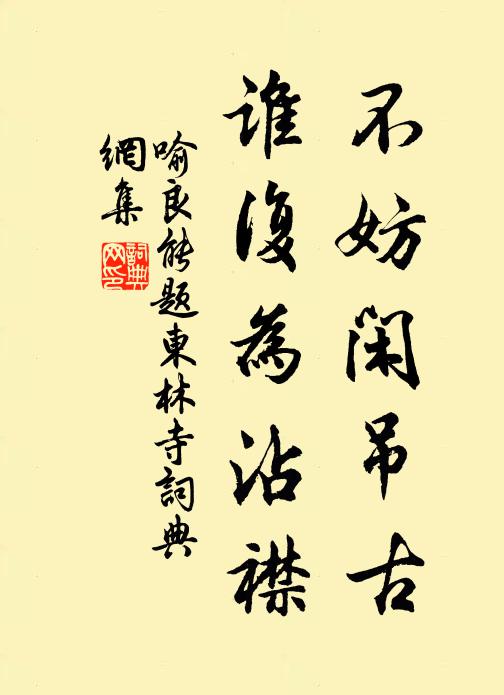 不妨閑吊古
誰復為沾襟
喻良能题東林寺詞典
網集
詞典
网印